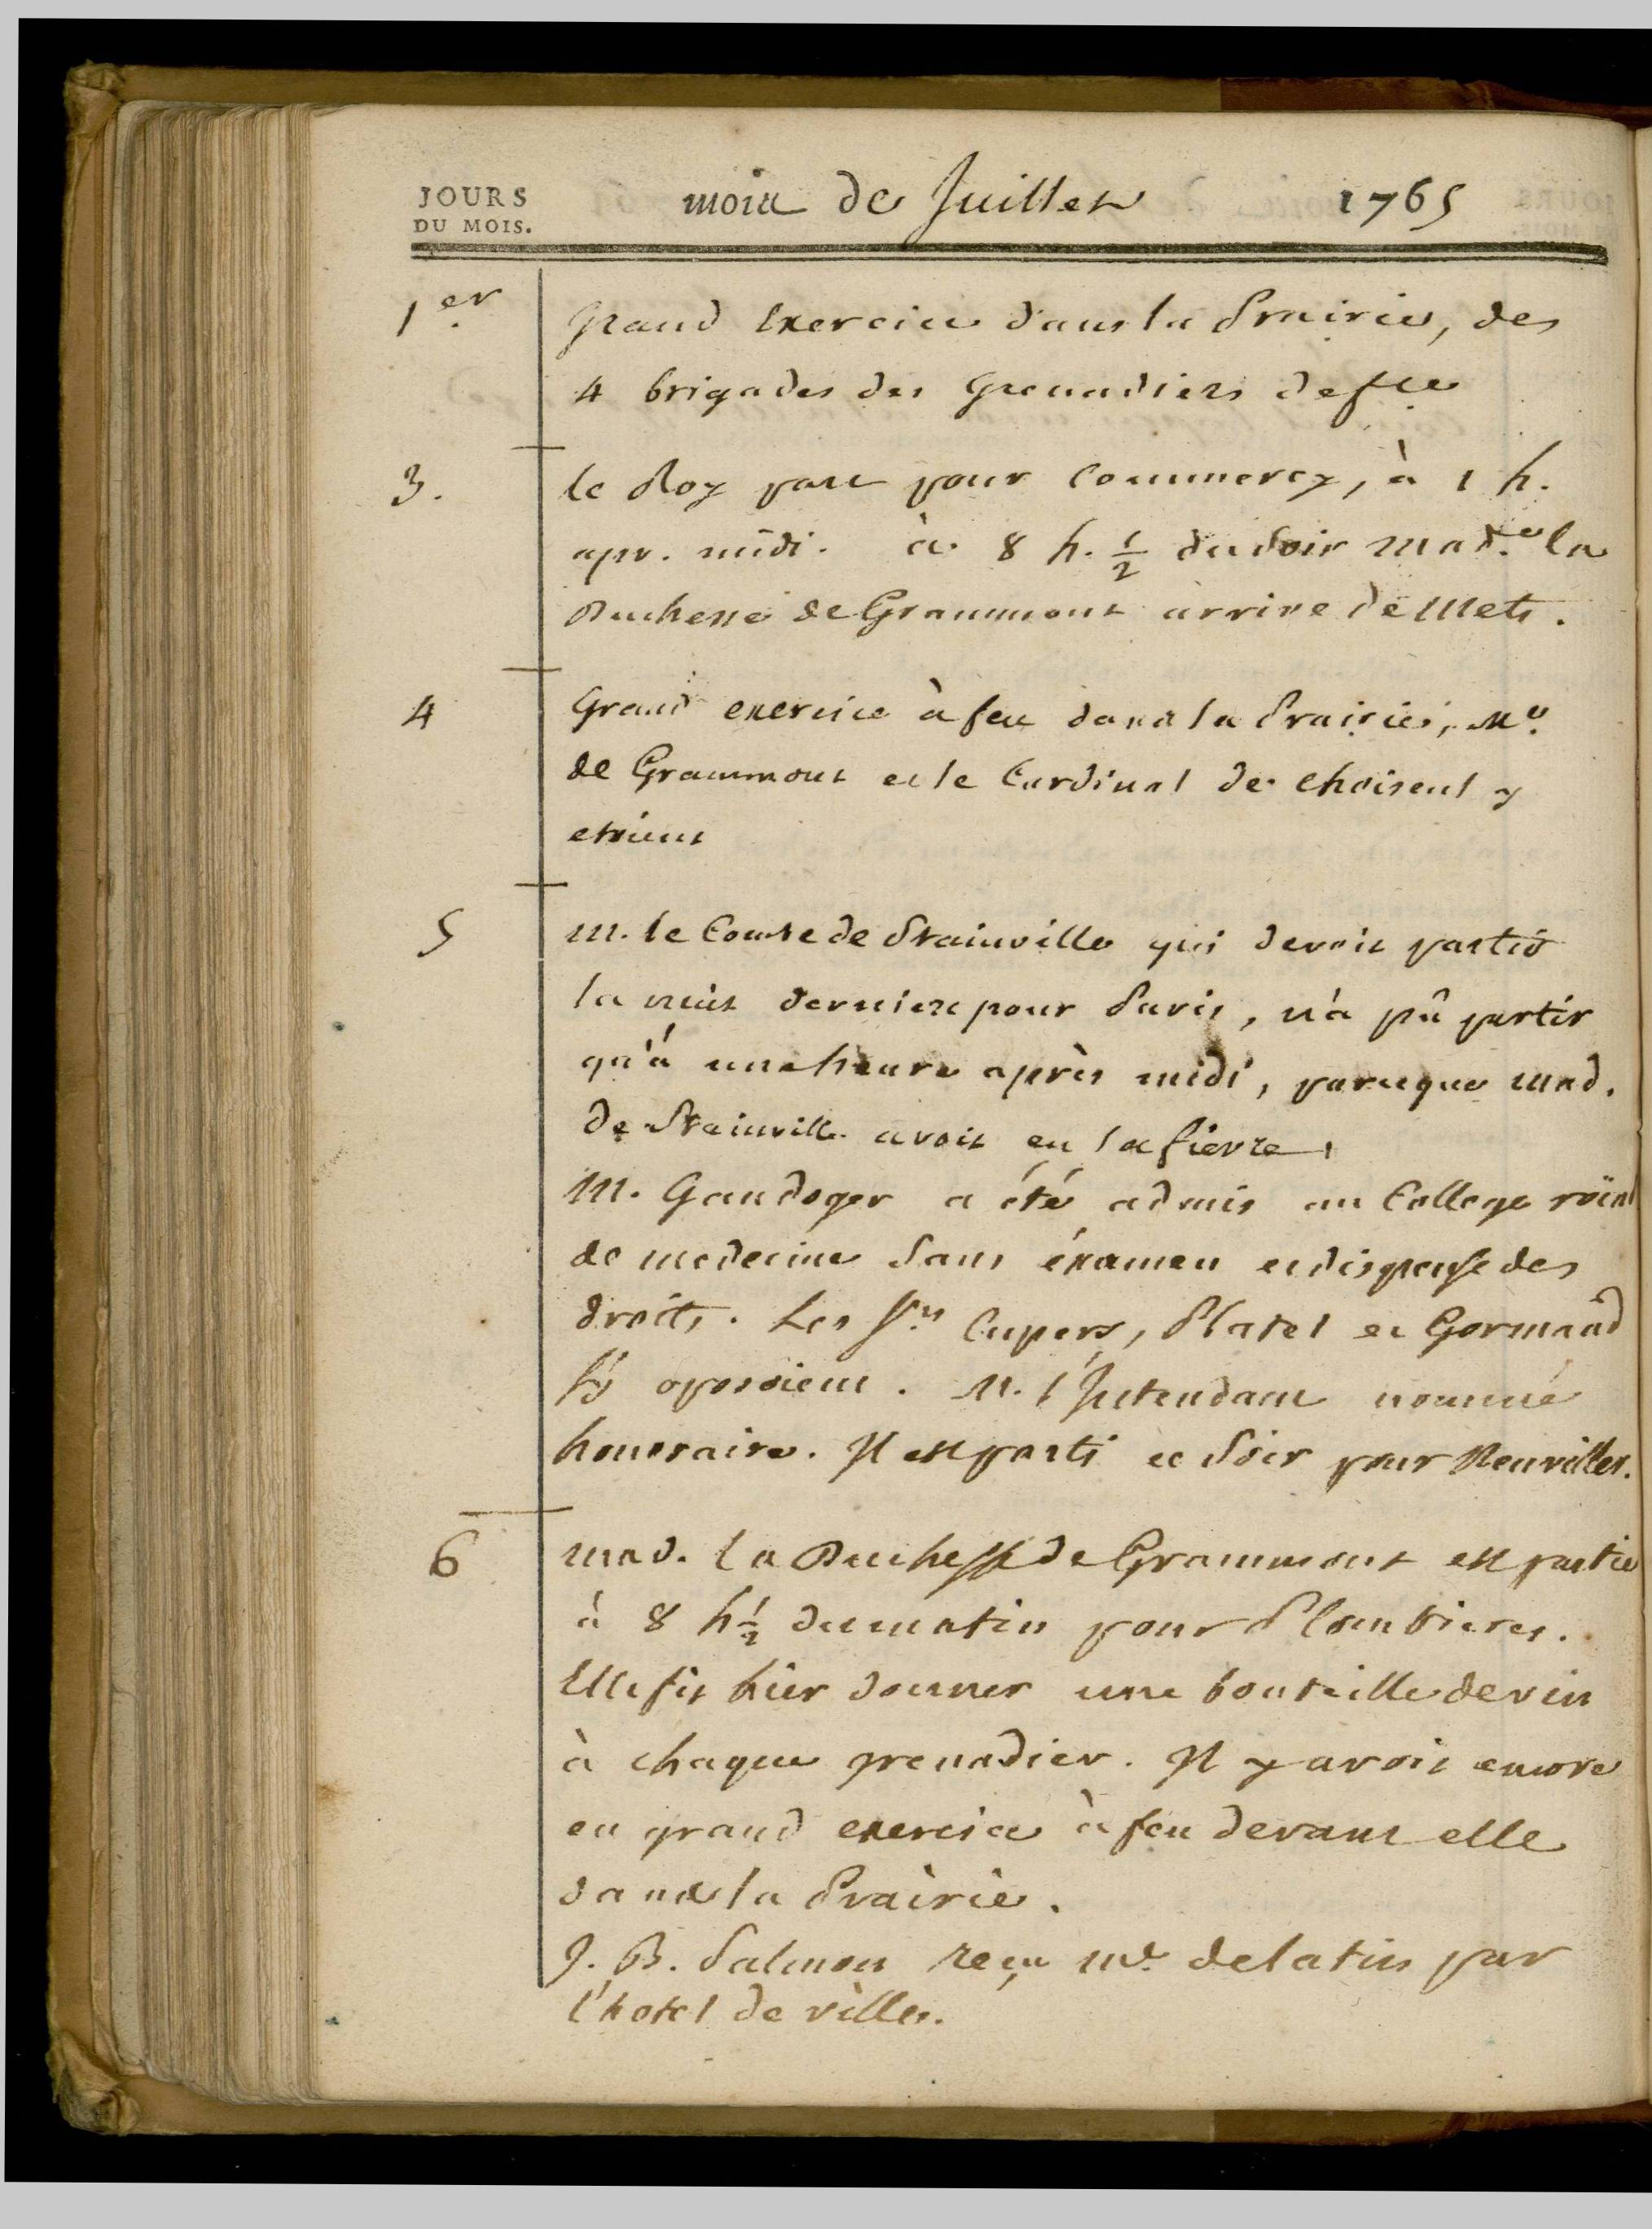 JOURS
DU MOIS.
mois de Juillet 1765
1er. Grand Exercice dans la Prairie, des
4 brigades des Grenadiers de fce
3. le Roy part pour Commercy, à 1 h.
apr. midi. à 8 h. 1/2 du soir Made. la
Duchesse de Grammont arrive de Mets.
4 Grand exercice à feu dans la Prairie, Me.
de Grammont et le Cardinal de Choiseul y
etoient
5 M. le Comte de Stainville qui devoit partir
la nuit derniere pour Paris, n'a pû partir
qu'à une heure après midi, parceque Mad.
de Stainville avoit eu la fievre,
M. Gandoger a été admis au College roïal
de medecine sans éxamen et dispense des
droits. Les Srs Cupers, Platel et Gormand
s'y oposoient. M. l'Intendant nommé
honoraire. Il est parti ce soir pour Neuviller.
6 Mad. la Duchesse de Grammont est partie
à 8 h 1/2 du matin pour Plombieres.
Elle fit hier donner une bouteille de vin
à chaque grenadier. Il y avoit encore
eu grand exercice à feu devant elle
dans la Prairie.
J. B. Salmon reçu Me. de latin par
l'hotel de ville.